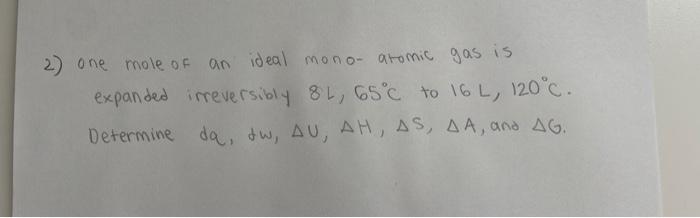 2) one mole of an ideal mono-atomic gas is
expanded irreversibly 8L, 65°C to 16L, 120°C.
Determine dq, dw, ΔU, ΔH, ΔS, ΔA, and ΔG.